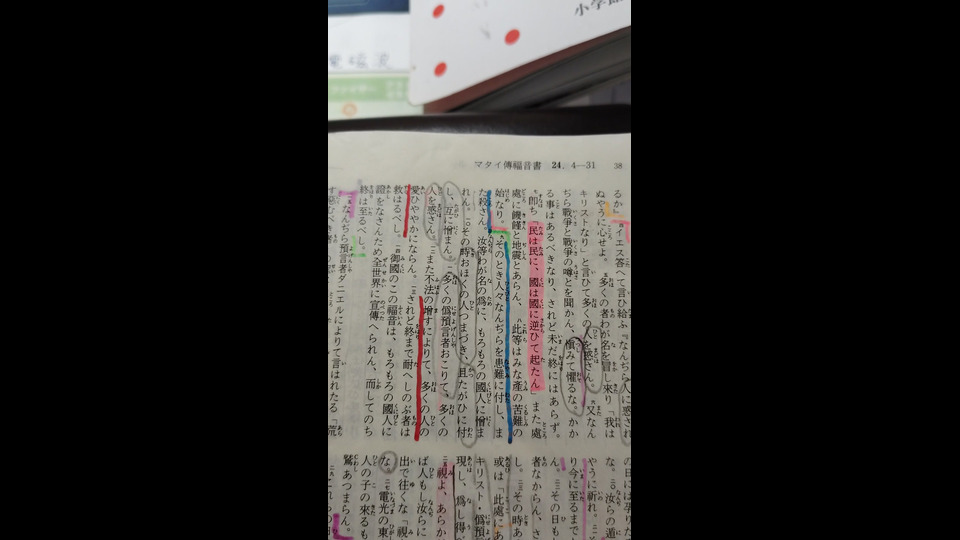 小学館
マタイ傳福音書 24, 4—31
38
るか』
四イエス答へて言ひ給ふ『なんぢら人に惑され
ぬやうに心せよ。五多くの者わが名を冒し來り「我は
キリストなり」と言ひて多くの人を惑さん。六又なん
ぢら戰爭と戰爭の噂とを聞かん、愼みて懼るな。かか
る事はあるべきなり、されど未だ終にはあらず。
七即ち「民は民に、國は國に逆ひて起たん」また處
處に饑饉と地震とあらん、八此等はみな產の苦難の
始なり。九そのとき人々なんぢらを患難に付し、ま
た殺さん、汝等わが名の爲に、もろもろの國人に憎ま
れん。一〇その時おほくの人つまづき、且たがひに付
し、互に憎まん。一一多くの僞預言者おこりて、多くの
人を惑さん。一二また不法の增すによりて、多くの人の
愛ひややかにならん。一三されど終まで耐へしのぶ者は
救はるべし。一四御國のこの福音は、もろもろの國人に
證をなさんため全世界に宣傳へられん、而してのち
終は至るべし。
一五なんぢら預言者ダニエルによりて言はれたる「荒
の日には孕りた
な。二〇汝らの遁
やうに祈れ。二一
り今に至るまで
ん。二二その日も
者なからん、さ
し。二三その時あ
或は「此處にあ
キリスト・僞預
現し、爲し得
二五視よ、あらか
ば人もし汝らに
出で往くな「視
な。二七電光の東
人の子の來るも
鷲あつまらん。